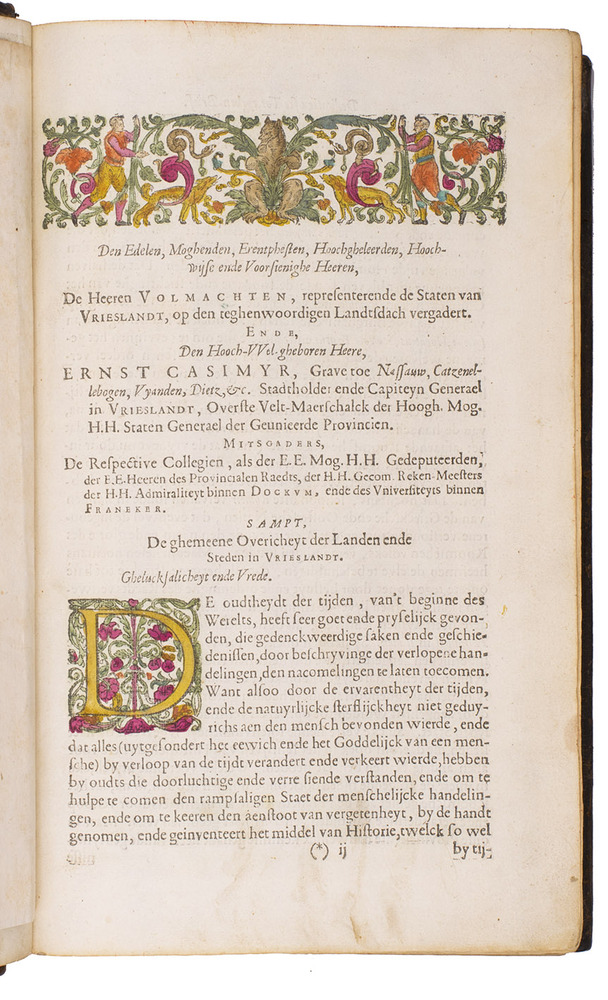 Den Edelen, Moghenden, Erentphesten, Hoochgheleerden, Hooch-
wijse ende Voorsienighe Heeren,
De Heeren VOLMACHTEN, representerende de Staten van
VRIESLANDT, op den teghenwoordigen Landtsdach vergadert.
ENDE,
Den Hooch-VVel-gheboren Heere,
ERNST CASIMYR, Grave toe Nassauw, Catzenel-
lebogen, Vyanden, Dietz, &c. Stadtholder ende Capiteyn Generael
in VRIESLANDT, Overste Velt-Maerschalck der Hoogh. Mog.
H.H. Staten Generael der Geunieerde Provincien.
MITSGADERS,
De Respective Collegien, als der E.E. Mog. H.H. Gedeputeerden,
der E.E. Heeren des Provincialen Raedts, der H.H. Gecom. Reken-Meesters
der H.H. Admiraliteyt binnen DOCKVM, ende des Vniversiteyts binnen
FRANEKER.
SAMPT,
De ghemeene Overicheyt der Landen ende
Steden in VRIESLANDT.
Ghelucksalicheyt ende Vrede.
DE oudtheydt der tijden, van't beginne des
Werelts, heeft seer goet ende pryselijck gevon-
den, die gedenckweerdige saken ende geschie-
denissen, door beschryvinge der verlopene han-
delingen, den nacomelingen te laten toecomen.
Want alsoo door de ervarentheyt der tijden,
ende de natuyrlijcke sterflijckheyt niet geduy-
richs aen den mensch bevonden wierde, ende
dat alles (uytgesondert het eewich ende het Goddelijck van een men-
sche) by verloop van de tijdt verandert ende verkeert wierde, hebben
by oudts die doorluchtige ende verre siende verstanden, ende om te
hulpe te comen den rampsaligen Staet der menschelijcke handelin-
gen, ende om te keeren den aenstoot van vergetenheyt, by de handt
genomen, ende geinventeert het middel van Historie, twelck so wel
(*) ij by tij-